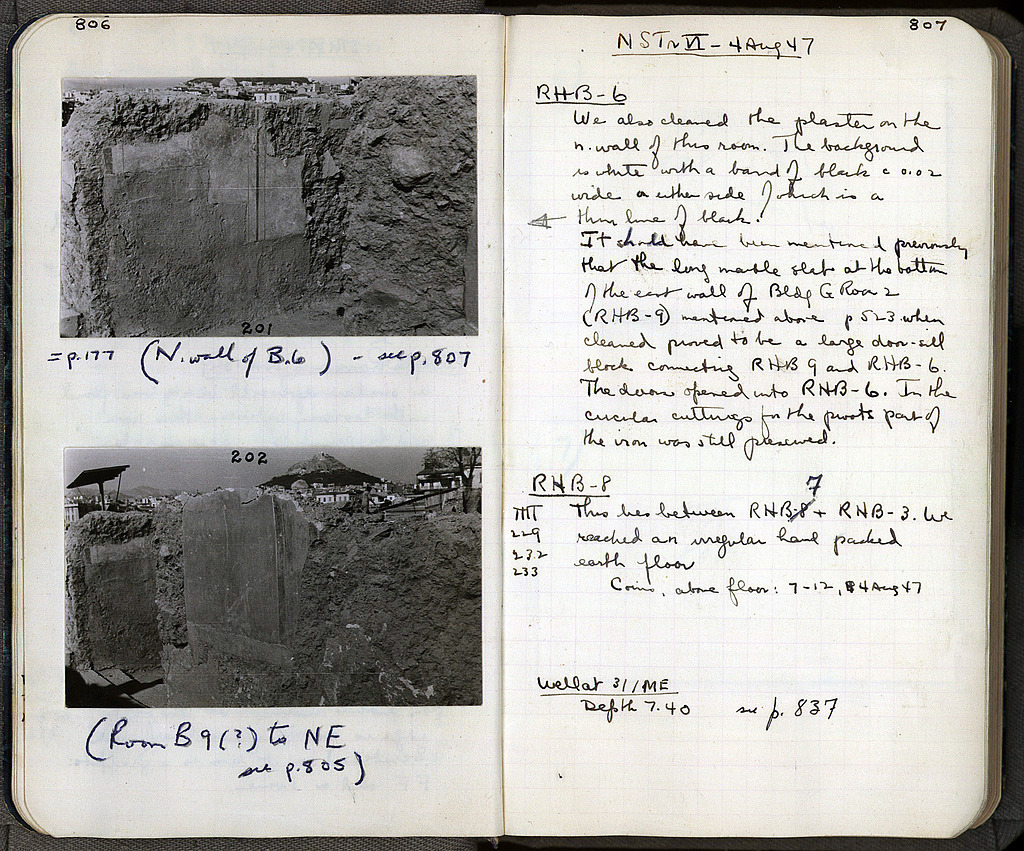 806
201
= p.177 (N. wall of B.6) - see p. 807
202
(Room B 9 (?) to NE
see p. 805)
807
NSTr VI - 4 Aug 47
RHB-6
We also cleaned the plaster on the
n. wall of this room. The background
is white with a band of black c 0.02
wide on either side of which is a
thin line of black.
It should have been mentioned previously
that the long marble slab at the bottom
of the east wall of Bldg G Room 2
(RHB-9) mentioned above p 523 when
cleaned proved to be a large door-sill
block connecting RHB 9 and RHB-6.
The doors opened into RHB-6. In the
circular cuttings for the pivots part of
the iron was still preserved.
RHB-8
7
This lies between RHB-8 + RHB-3. We
229
reached an irregular hard packed
232
earth floor
233
Coins, above floor: 7-12, 4 Aug 47
Well at 31/ME
Depth 7.40 see p. 837